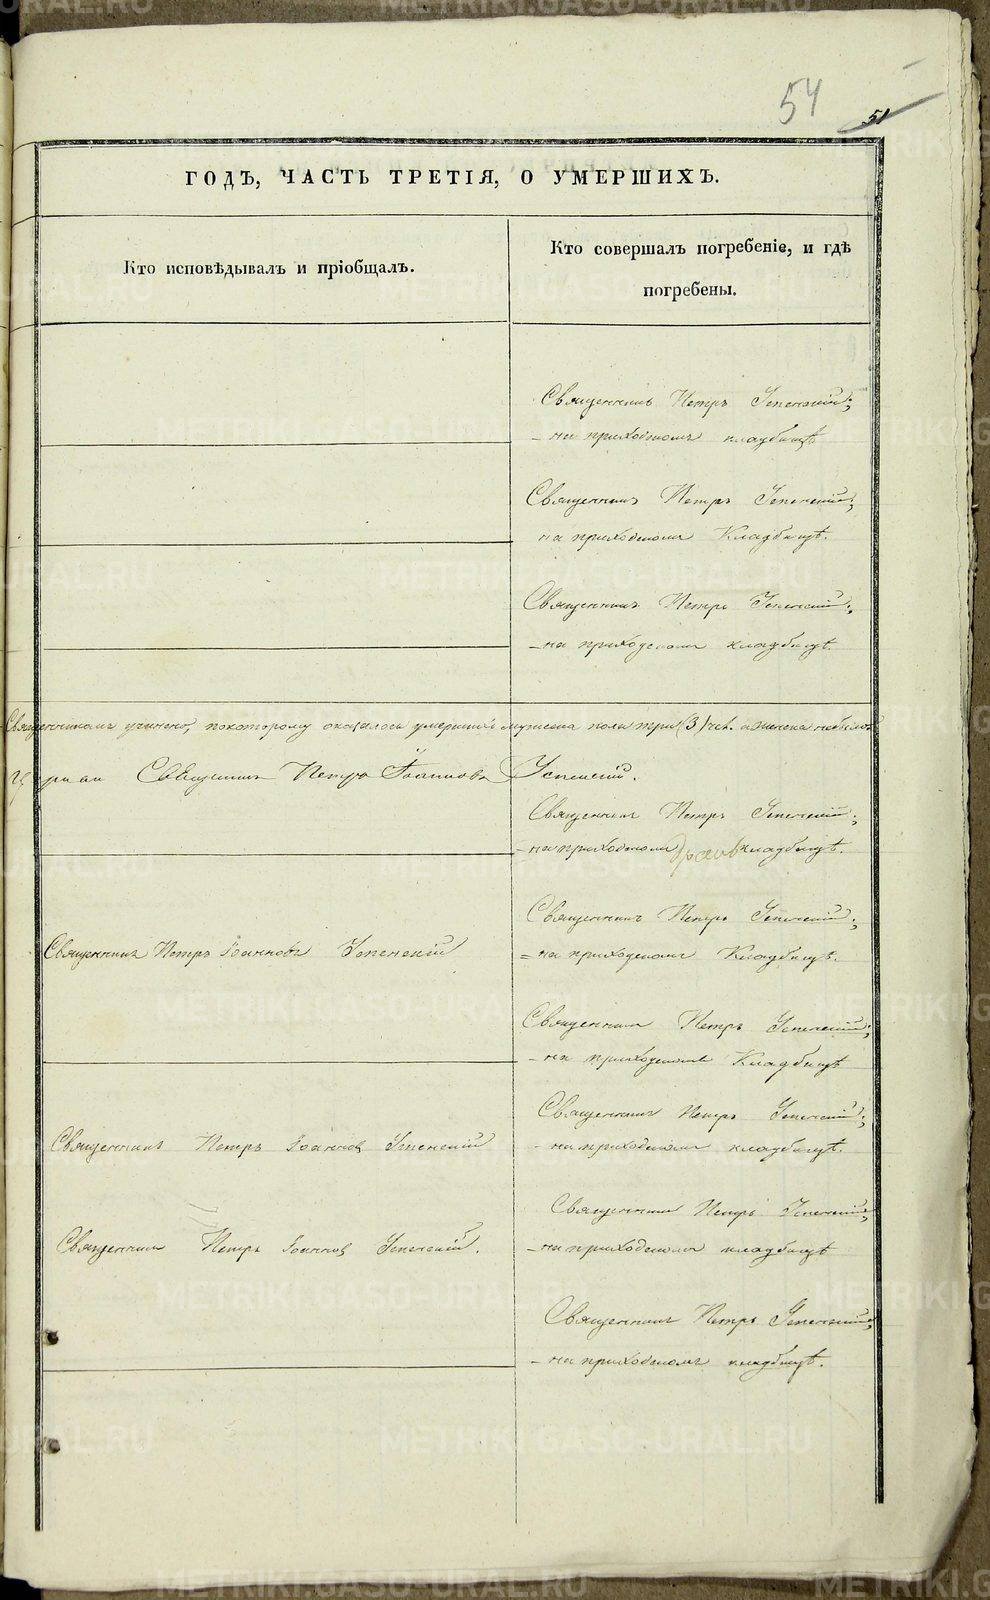 54
51
ГОДЪ, ЧАСТЬ ТРЕТІЯ, О УМЕРШИХЪ.
Кто исповѣдывалъ и пріобщалъ.
Кто совершалъ погребеніе, и гдѣ
погребены.
Священникъ Петръ Успенскій;
на приходскомъ кладбищѣ
Священникъ Петръ Успенскій;
на приходскомъ Кладбищѣ.
Священникъ Петръ Успенскій;
на приходскомъ кладбищѣ.
Священникомъ учинено, по которому оказалось умершихъ мужеска пола три (3) чел. а женска небыло
Священникъ Петръ Іоанновъ Успенскій.
Священникъ Петръ Успенскій;
на приходскомъ кладбищѣ.
Священникъ Петръ Іоанновъ Успенскій
Священникъ Петръ Успенскій;
на приходскомъ Кладбищѣ.
Священникъ Петръ Успенскій;
на приходскомъ Кладбищѣ
Священникъ Петръ Іоанновъ Успенскій
Священникъ Петръ Успенскій;
на приходскомъ кладбищѣ.
Священникъ Петръ Іоанновъ Успенскій.
Священникъ Петръ Успенскій;
на приходскомъ кладбищѣ
Священникъ Петръ Успенскій;
на приходскомъ кладбищѣ.
METRIKI.GASO-URAL.RU